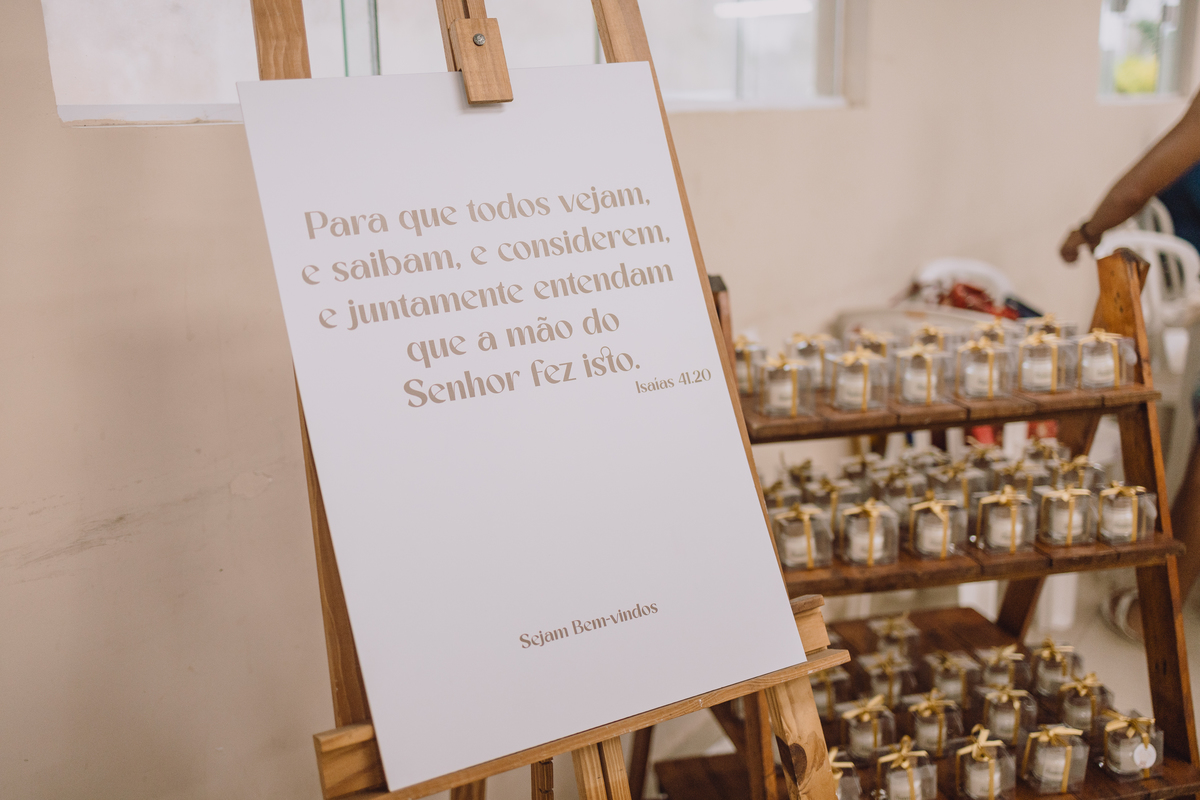 Para que todos vejam,
e saibam, e considerem,
e juntamente entendam
que a mão do
Senhor fez isto.
Isaias 41:20
Sejam Bem-vindos